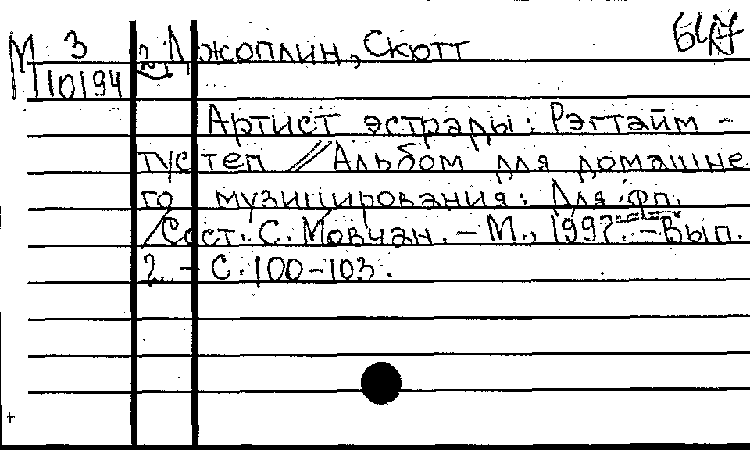 М 3 2. Джоплин, Скотт
110194
Артист эстрады: Рэгтайм -
тустеп // Альбом для домашне
го музицирования: Для фп.
/Сост. С. Мовчан. - М., 1992. - Вып.
2. - С. 100-103.